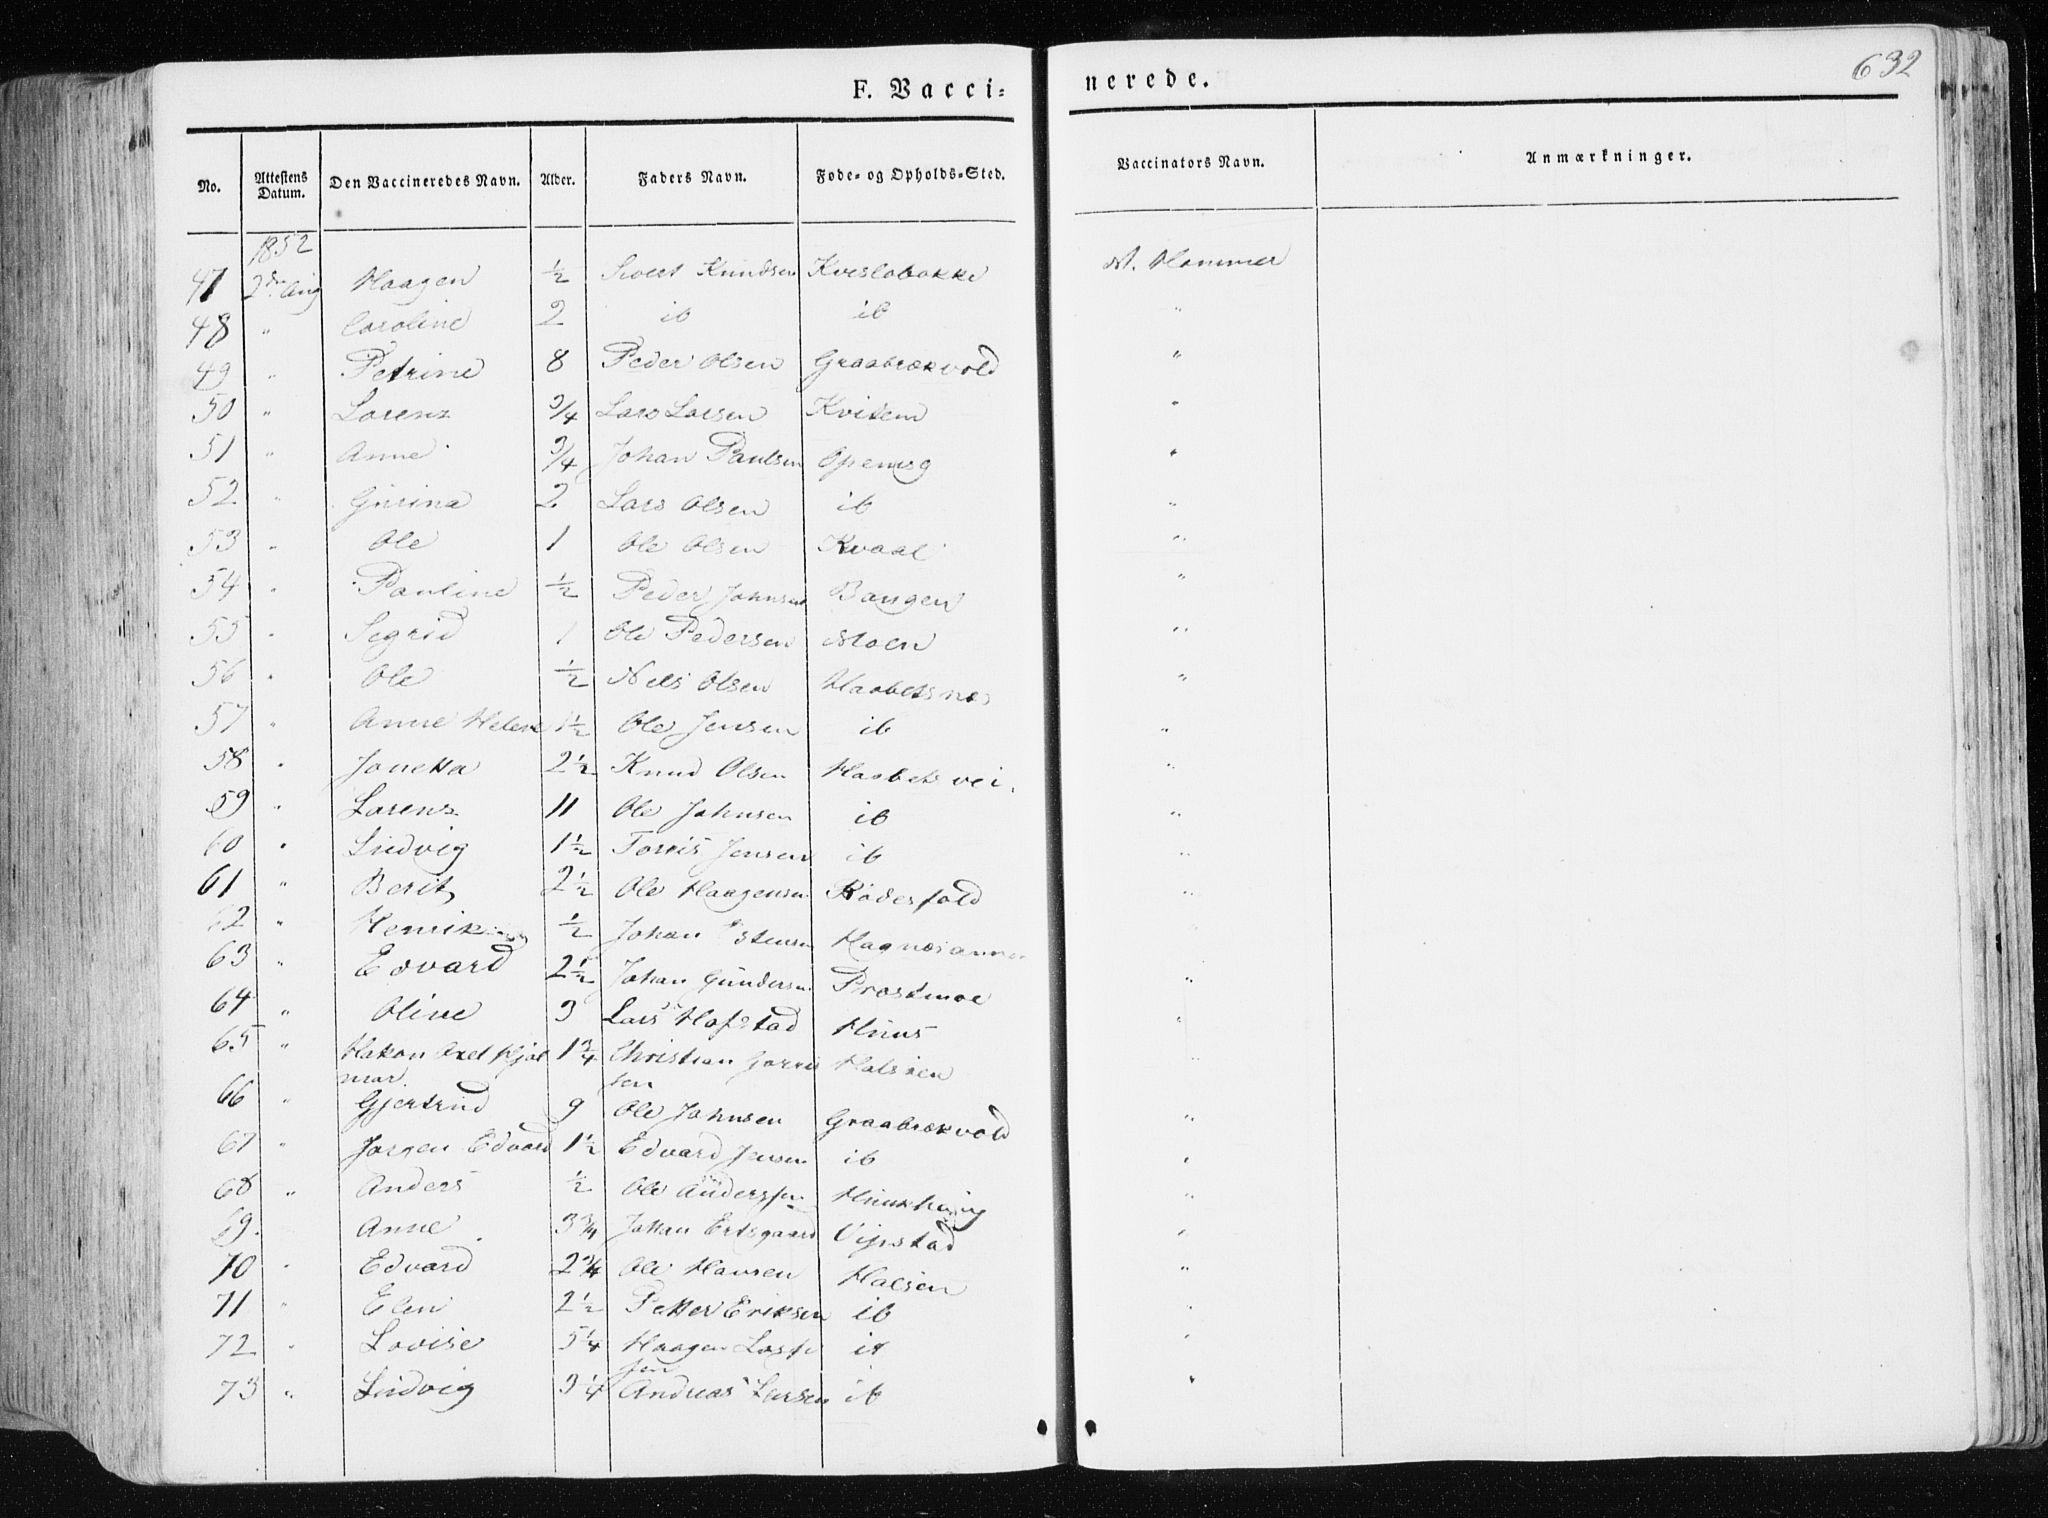 F. Vacci= nerede. 632
No. Attestens Datum. Den Vaccineredes Navn. Alder. Faders Navn. Føde- og Opholds-Sted. Vaccinators Navn. Anmærkninger.
1852
47 2den Aug Haagen ½ Sivert Knudsen Kveslabakke M. Hammer
48 " Caroline 2 ib ib "
49 " Petrine 8 Peder Olsen Graabrækvold "
50 " Lorens 3/4 Lars Larsen Kvitem "
51 " Anne 3/4 Johan Paulsen "
52 " Gurina 2 Lars Olsen ib "
53 " Ole 1 Ole Olsen Kvaal "
54 " Pauline ½ Peder Johnsen Baugen "
55 " Segrid 1 Ole Pedersen Moen "
56 " Ole ½ Nils Olsen Haabetsnæs "
57 " Anne Helene 1½ Ole Jensen ib "
58 " Jonetta 2½ Knud Olsen "
59 " Lorens 11 Ole Johnsen ib "
60 " Ludvig 1½ Torris Jensen ib "
61 " Berit 2½ Ole Haagensen "
62 " Henrik ½ Johan
63 " Edvard 2½ Johan Gundersen Præstmoe "
64 " Olive 3 Lars Hofstad Huus "
65 " Hakon Axel Hjal 1¾ Christian Halsen "
mar sen
66 " Gjertrud 9 Ole Johnsen Graabrækvold "
67 " Jørgen Edvard 1½ Edvard Jensen ib "
68 " Anders ½ Ole Anderssen "
69. Anne 3¾ Johan Ertsgaard Vipstad "
70 " Edvard 2¾ Ole Hansen Halsen "
71 " Elen 2½ Petter Eriksen ib "
72 " Lovise 5¼ Haagen ib "
sen
73 " Ludvig 3¼ Andreas Larsen ib "